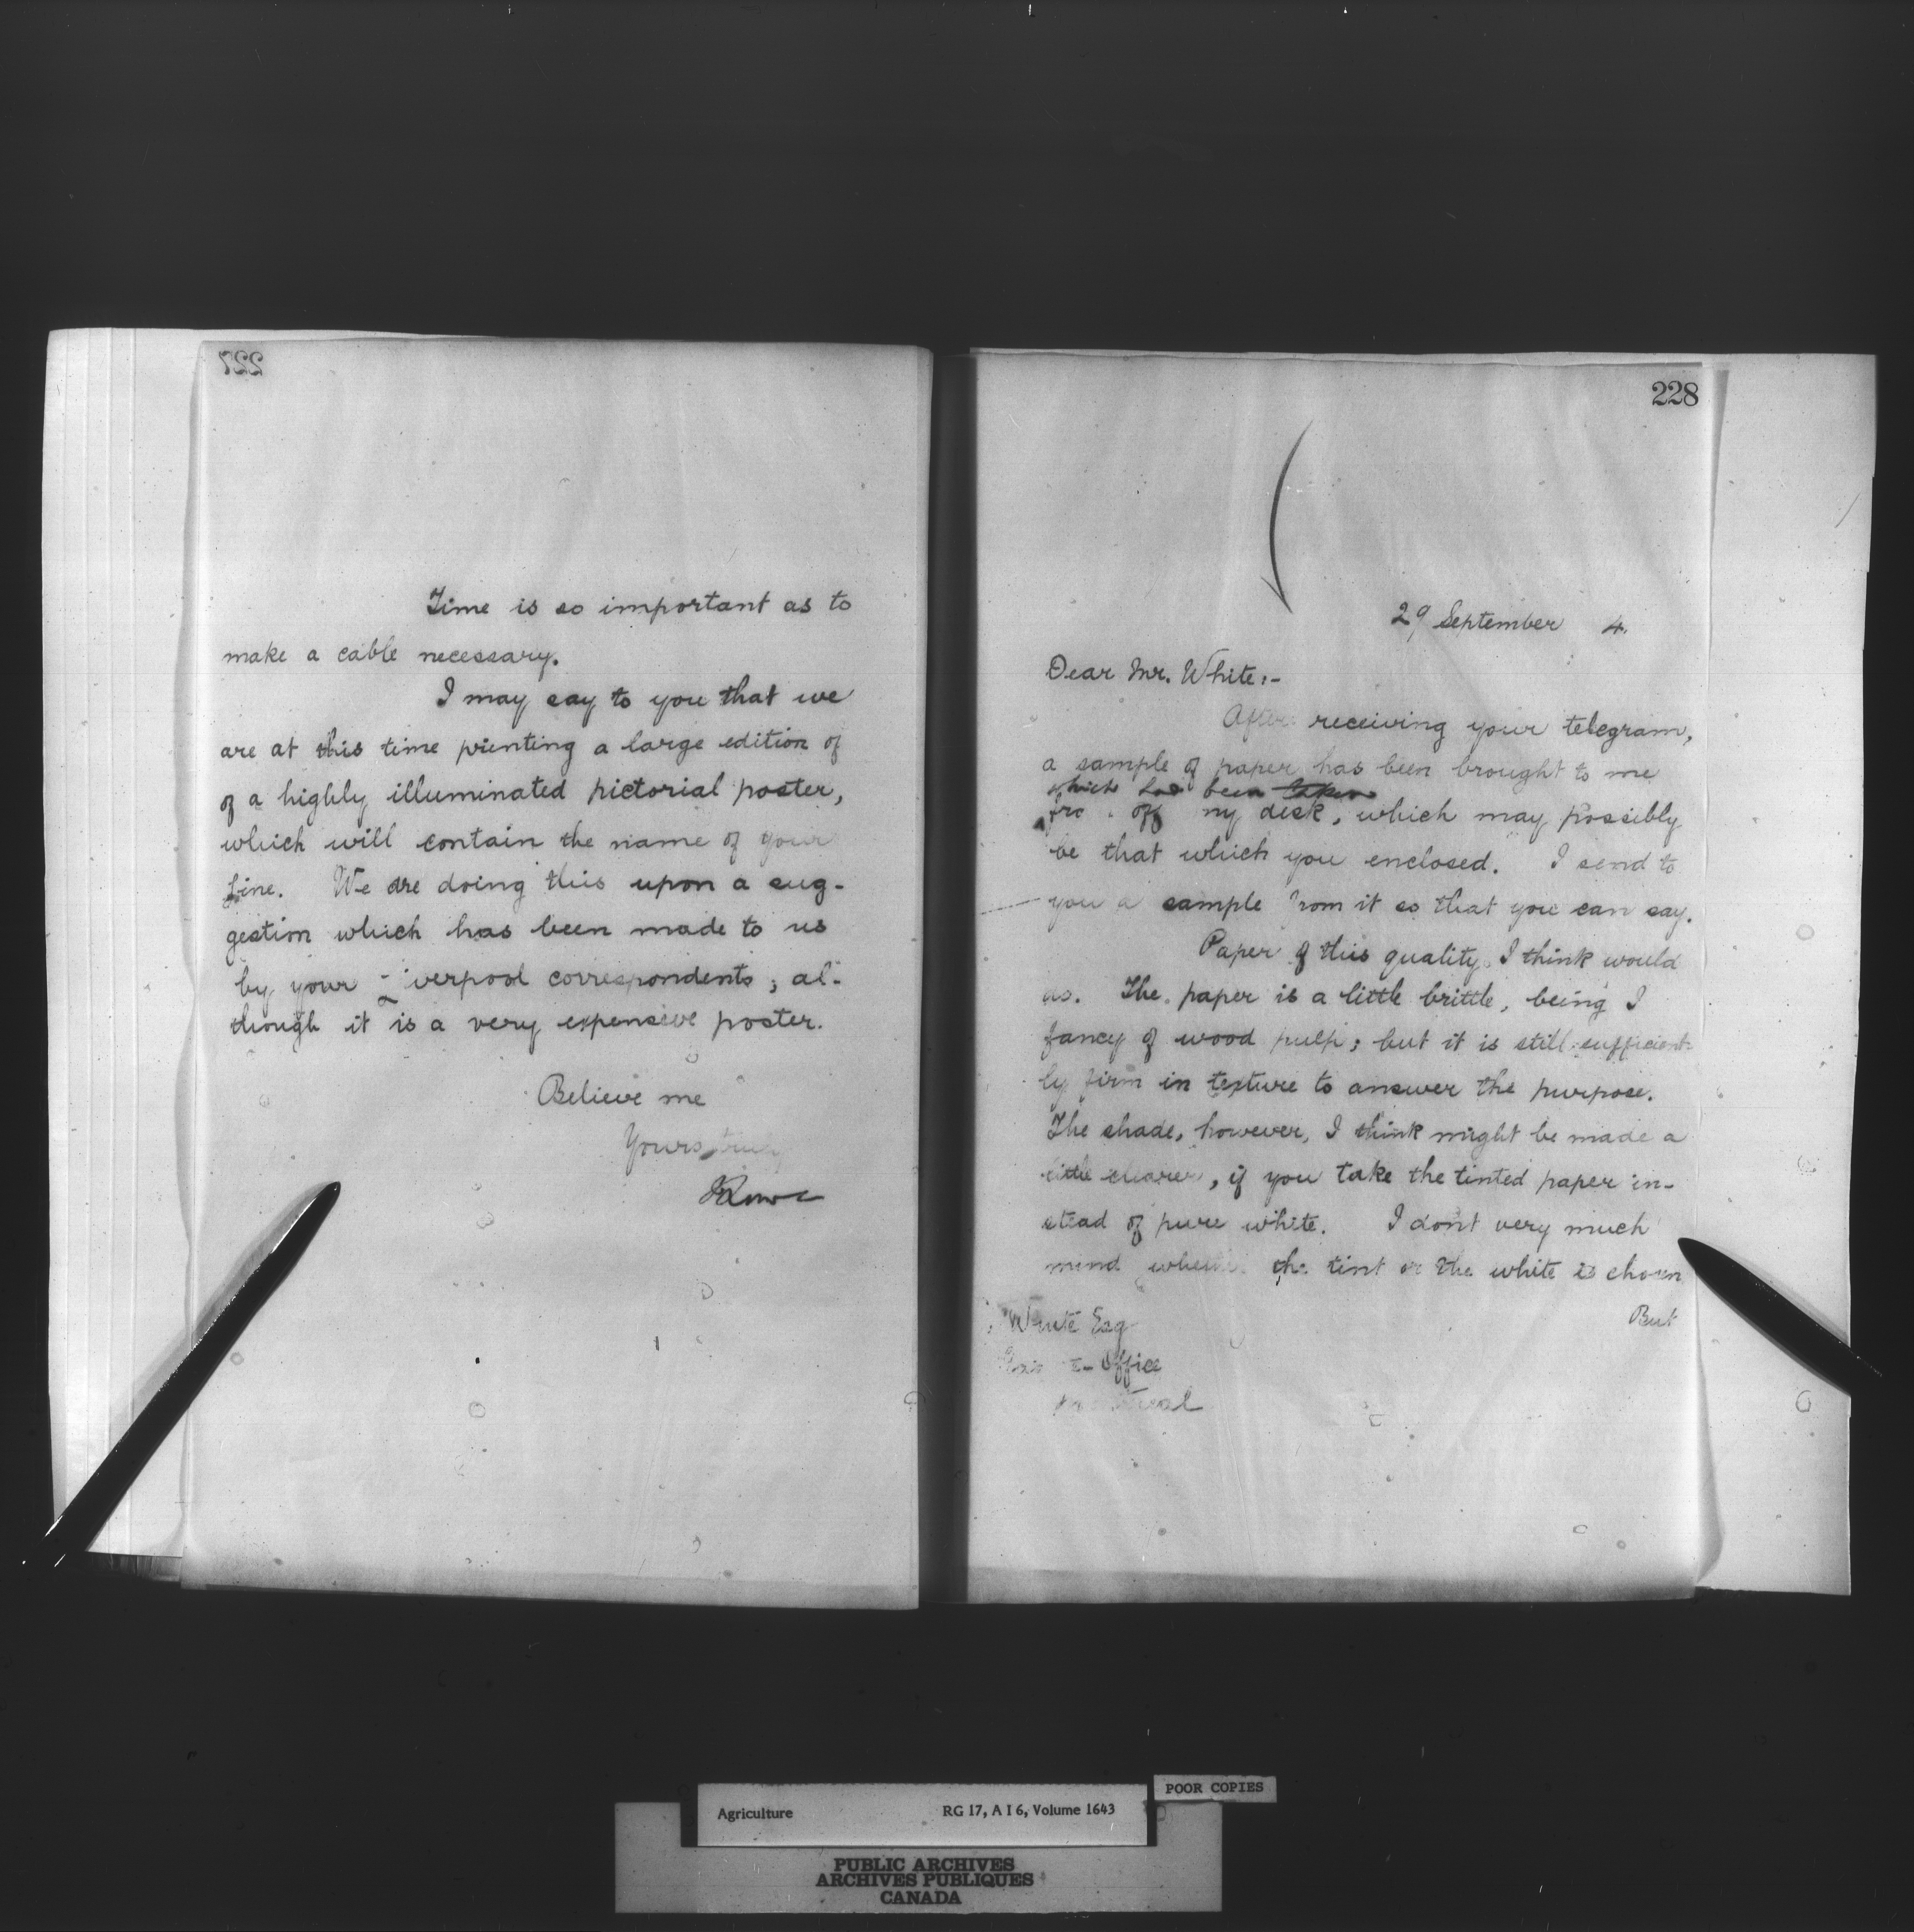 227
Time is so important as to
make a cable necessary.
I may say to you that we
are at this time printing a large edition of
of a highly illuminated pictorial poster,
which will contain the name of your
Line. We are doing this upon a sug-
gestion which has been made to us
by your verpool correspondents; al-
though it is a very expensive poster.
Believe me
Yours truly
JLowe
228
29 September 4.
Dear Mr. White:-
After receiving your telegram,
a sample of paper has been brought to me
which has been taken
off my desk, which may possibly
be that which you enclosed. I send to
you a sample from it so that you can say.
Paper of this quality I think would
do. The paper is a little brittle, being I
fancy of wood pulp; but it is still sufficient-
ly firm in texture to answer the purpose.
The shade, however, I think might be made a
little clearer, if you take the tinted paper in-
stead of pure white. I dont very much
mind whether the tint or the white is chosen
But
White Esq
Office
Agriculture RG 17, A I 6, Volume 1643
POOR COPIES
PUBLIC ARCHIVES
ARCHIVES PUBLIQUES
CANADA